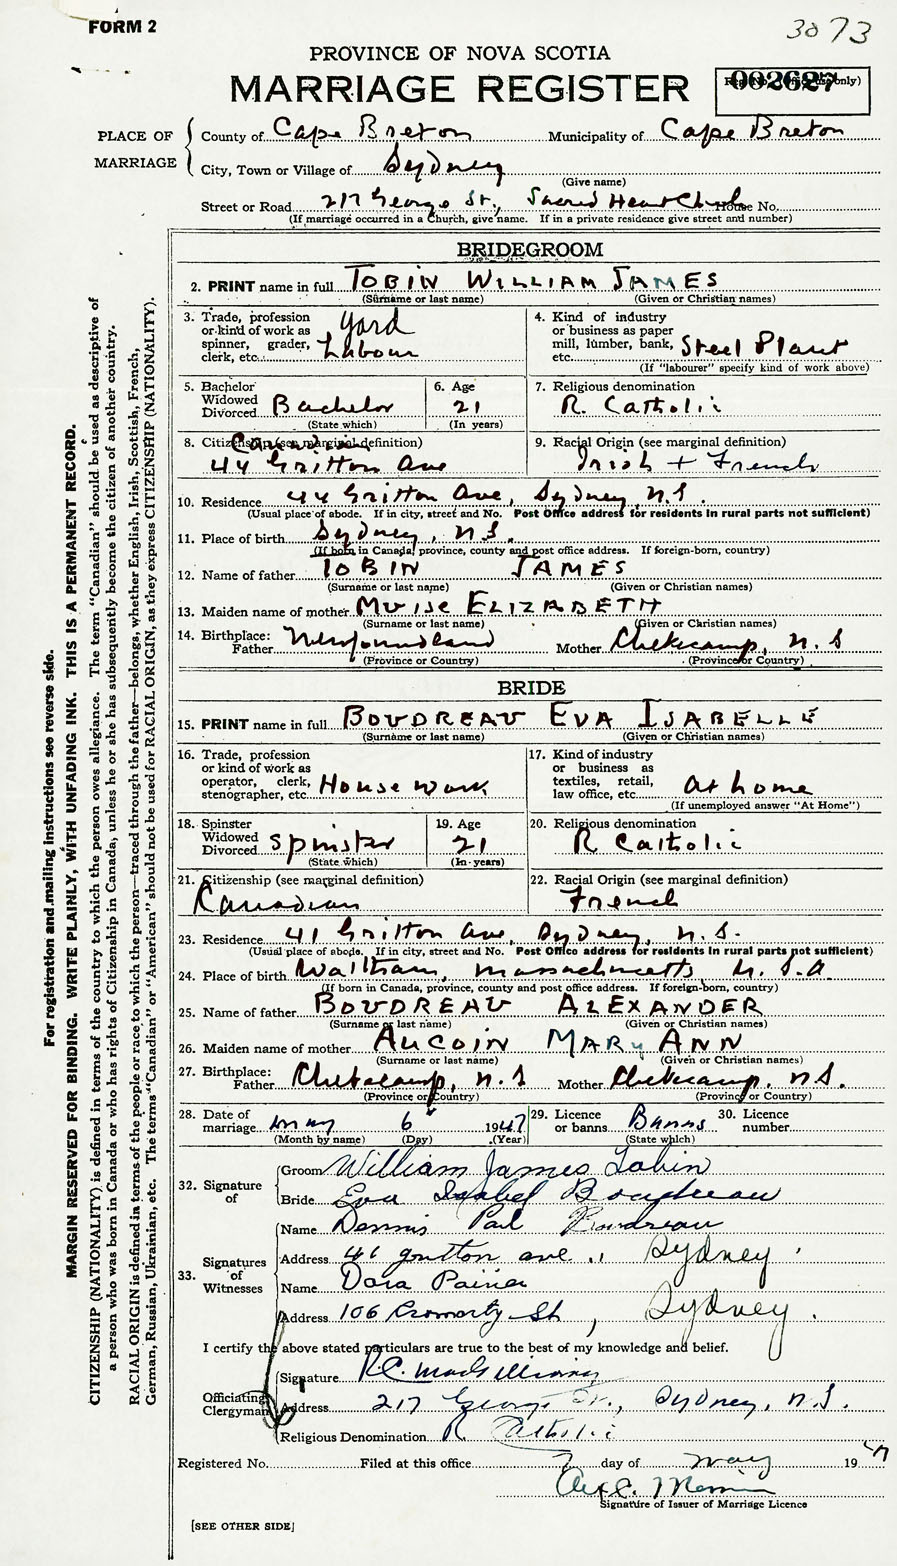 FORM 2
3073
PROVINCE OF NOVA SCOTIA
MARRIAGE REGISTER
002627
PLACE OF MARRIAGE
County of Cape Breton Municipality of Cape Breton
City, Town or Village of Sydney
(Give name)
Street or Road 217 George St., Sacred Heart Church House No.
(If marriage occurred in a Church, give name. If in a private residence give street and number)
BRIDEGROOM
2. PRINT name in full TOBIN WILLIAM JAMES
(Surname or last name) (Given or Christian names)
3. Trade, profession or kind of work as spinner, grader, clerk, etc. Yard Labour
4. Kind of industry or business as paper mill, lumber, bank, etc. Steel Plant
(If "labourer" specify kind of work above)
5. Bachelor Widowed Divorced Bachelor
(State which)
6. Age 21
(In years)
7. Religious denomination R. Catholic
8. Citizenship (see marginal definition) Canadian
44 Gritton Ave
9. Racial Origin (see marginal definition)
Irish + French
10. Residence 44 Gritton Ave, Sydney, N.S.
(Usual place of abode. If in city, street and No. Post Office address for residents in rural parts not sufficient)
11. Place of birth Sydney, N.S.
(If born in Canada, province, county and post office address. If foreign-born, country)
12. Name of father TOBIN JAMES
(Surname or last name) (Given or Christian names)
13. Maiden name of mother MUISE ELIZABETH
(Surname or last name) (Given or Christian names)
14. Birthplace: Father Newfoundland Mother Chetecamp, N.S
(Province or Country) (Province or Country)
BRIDE
15. PRINT name in full BOUDREAU EVA ISABELLE
(Surname or last name) (Given or Christian names)
16. Trade, profession or kind of work as operator, clerk, stenographer, etc. House work
17. Kind of industry or business as textiles, retail, law office, etc. at home
(If unemployed answer "At Home")
18. Spinster Widowed Divorced Spinster
(State which)
19. Age 21
(In years)
20. Religious denomination R Catholic
21. Citizenship (see marginal definition)
Canadian
22. Racial Origin (see marginal definition)
French
23. Residence 41 Gritton Ave, Sydney, N.S.
(Usual place of abode. If in city, street and No. Post Office address for residents in rural parts not sufficient)
24. Place of birth Waltham, Massachusetts U.S.A.
(If born in Canada, province, county and post office address. If foreign-born, country)
25. Name of father BOUDREAU ALEXANDER
(Surname or last name) (Given or Christian names)
26. Maiden name of mother AUCOIN MARY ANN
(Surname or last name) (Given or Christian names)
27. Birthplace: Father Chetecamp, N.S Mother Chetecamp, N.S.
(Province or Country) (Province or Country)
28. Date of marriage May 6 1947
(Month by name) (Day) (Year)
29. Licence or banns Banns
(State which)
30. Licence number
32. Signature of
Groom William James Tobin
Bride Eva Isabel Boudreau
33. Signatures of Witnesses
Name Dennis Paul Boudreau
Address 41 Gritton ave., Sydney
Name Dora
Address 106 Cromarty St, Sydney.
I certify the above stated particulars are true to the best of my knowledge and belief.
Officiating Clergyman
Signature R.C. MacGillivray
Address 217 George St., Sydney, N.S.
Religious Denomination R Catholic
Registered No. Filed at this office 7 day of May 1947
Signature of Issuer of Marriage Licence
[SEE OTHER SIDE]
For registration and mailing instructions see reverse side.
MARGIN RESERVED FOR BINDING. WRITE PLAINLY, WITH UNFADING INK. THIS IS A PERMANENT RECORD.
CITIZENSHIP (NATIONALITY) is defined in terms of the country to which the person owes allegiance. The term "Canadian" should be used as descriptive of
a person who was born in Canada or who has rights of Citizenship in Canada, unless he or she has subsequently become the citizen of another country.
RACIAL ORIGIN is defined in terms of the people or race to which the person—traced through the father—belongs, whether English, Irish, Scottish, French,
German, Russian, Ukrainian, etc. The terms "Canadian" or "American" should not be used for RACIAL ORIGIN, as they express CITIZENSHIP (NATIONALITY).